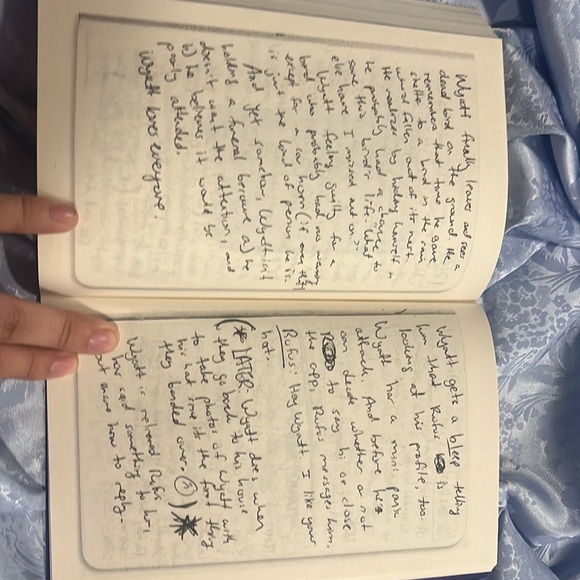 Wyatt finally leaves and sees a
dead bird on the ground. He
remembers that time he gave
shelter to a bird in the rain
who'd fallen out of its nest.
He realizes by hiding himself
he probably had a chance to
save this bird's life. "What
else have I missed out on?"
Wyatt feeling guilty for a
bird who probably had no
except for a car horn (if even that)
is just the kind of person he is.
And yet somehow, Wyatt isn't
holding a funeral because a) he
doesn't want the attention, and
b) he believes it would be
poorly attended.
Wyatt loves everyone.
Wyatt gets a bleep telling
him that Rufus is
looking at his profile, too.
Wyatt has a mini panic
attack. And before he
can decide whether or not
to say hi or close
the app, Rufus messages him.
Rufus: Hey Wyatt. I like your
hat.
(* LATER: Wyatt does when
they go back to his house
to take photos of Wyatt with
his hat since it's the first thing
they bonded over.
Wyatt is relieved Rufus
has said something to him,
how to reply-